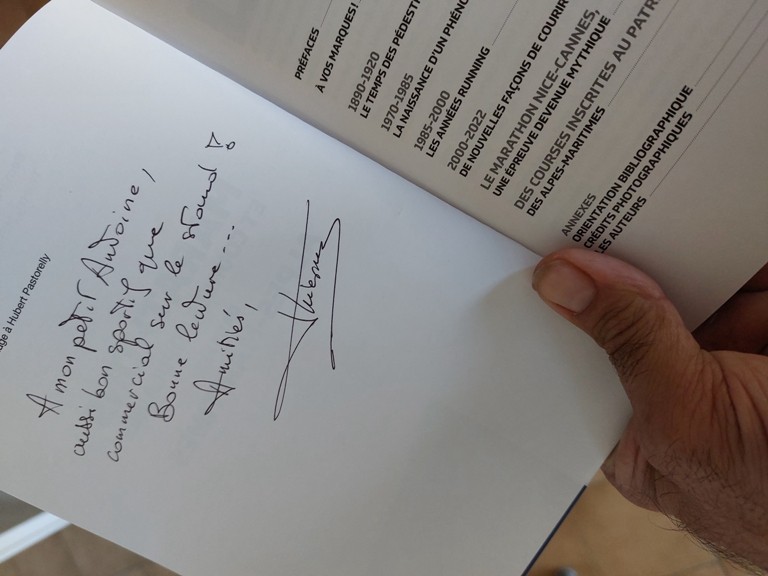 age à Hubert Pastorelly
A mon petit Antoine,
aussi bon sportif que
commercial sur le stand !
Bonne lecture...
Amitiés,
PRÉFACES
À VOS MARQUES !
1890-1920
LE TEMPS DES PÉDESTR
1970-1985
LA NAISSANCE D'UN PHÉNO
1985-2000
LES ANNÉES RUNNING
2000-2022
DE NOUVELLES FAÇONS DE COURIR
LE MARATHON NICE-CANNES,
UNE ÉPREUVE DEVENUE MYTHIQUE
DES COURSES INSCRITES AU PATR
DES ALPES-MARITIMES
ANNEXES
ORIENTATION BIBLIOGRAPHIQUE
CRÉDITS PHOTOGRAPHIQUES
LES AUTEURS